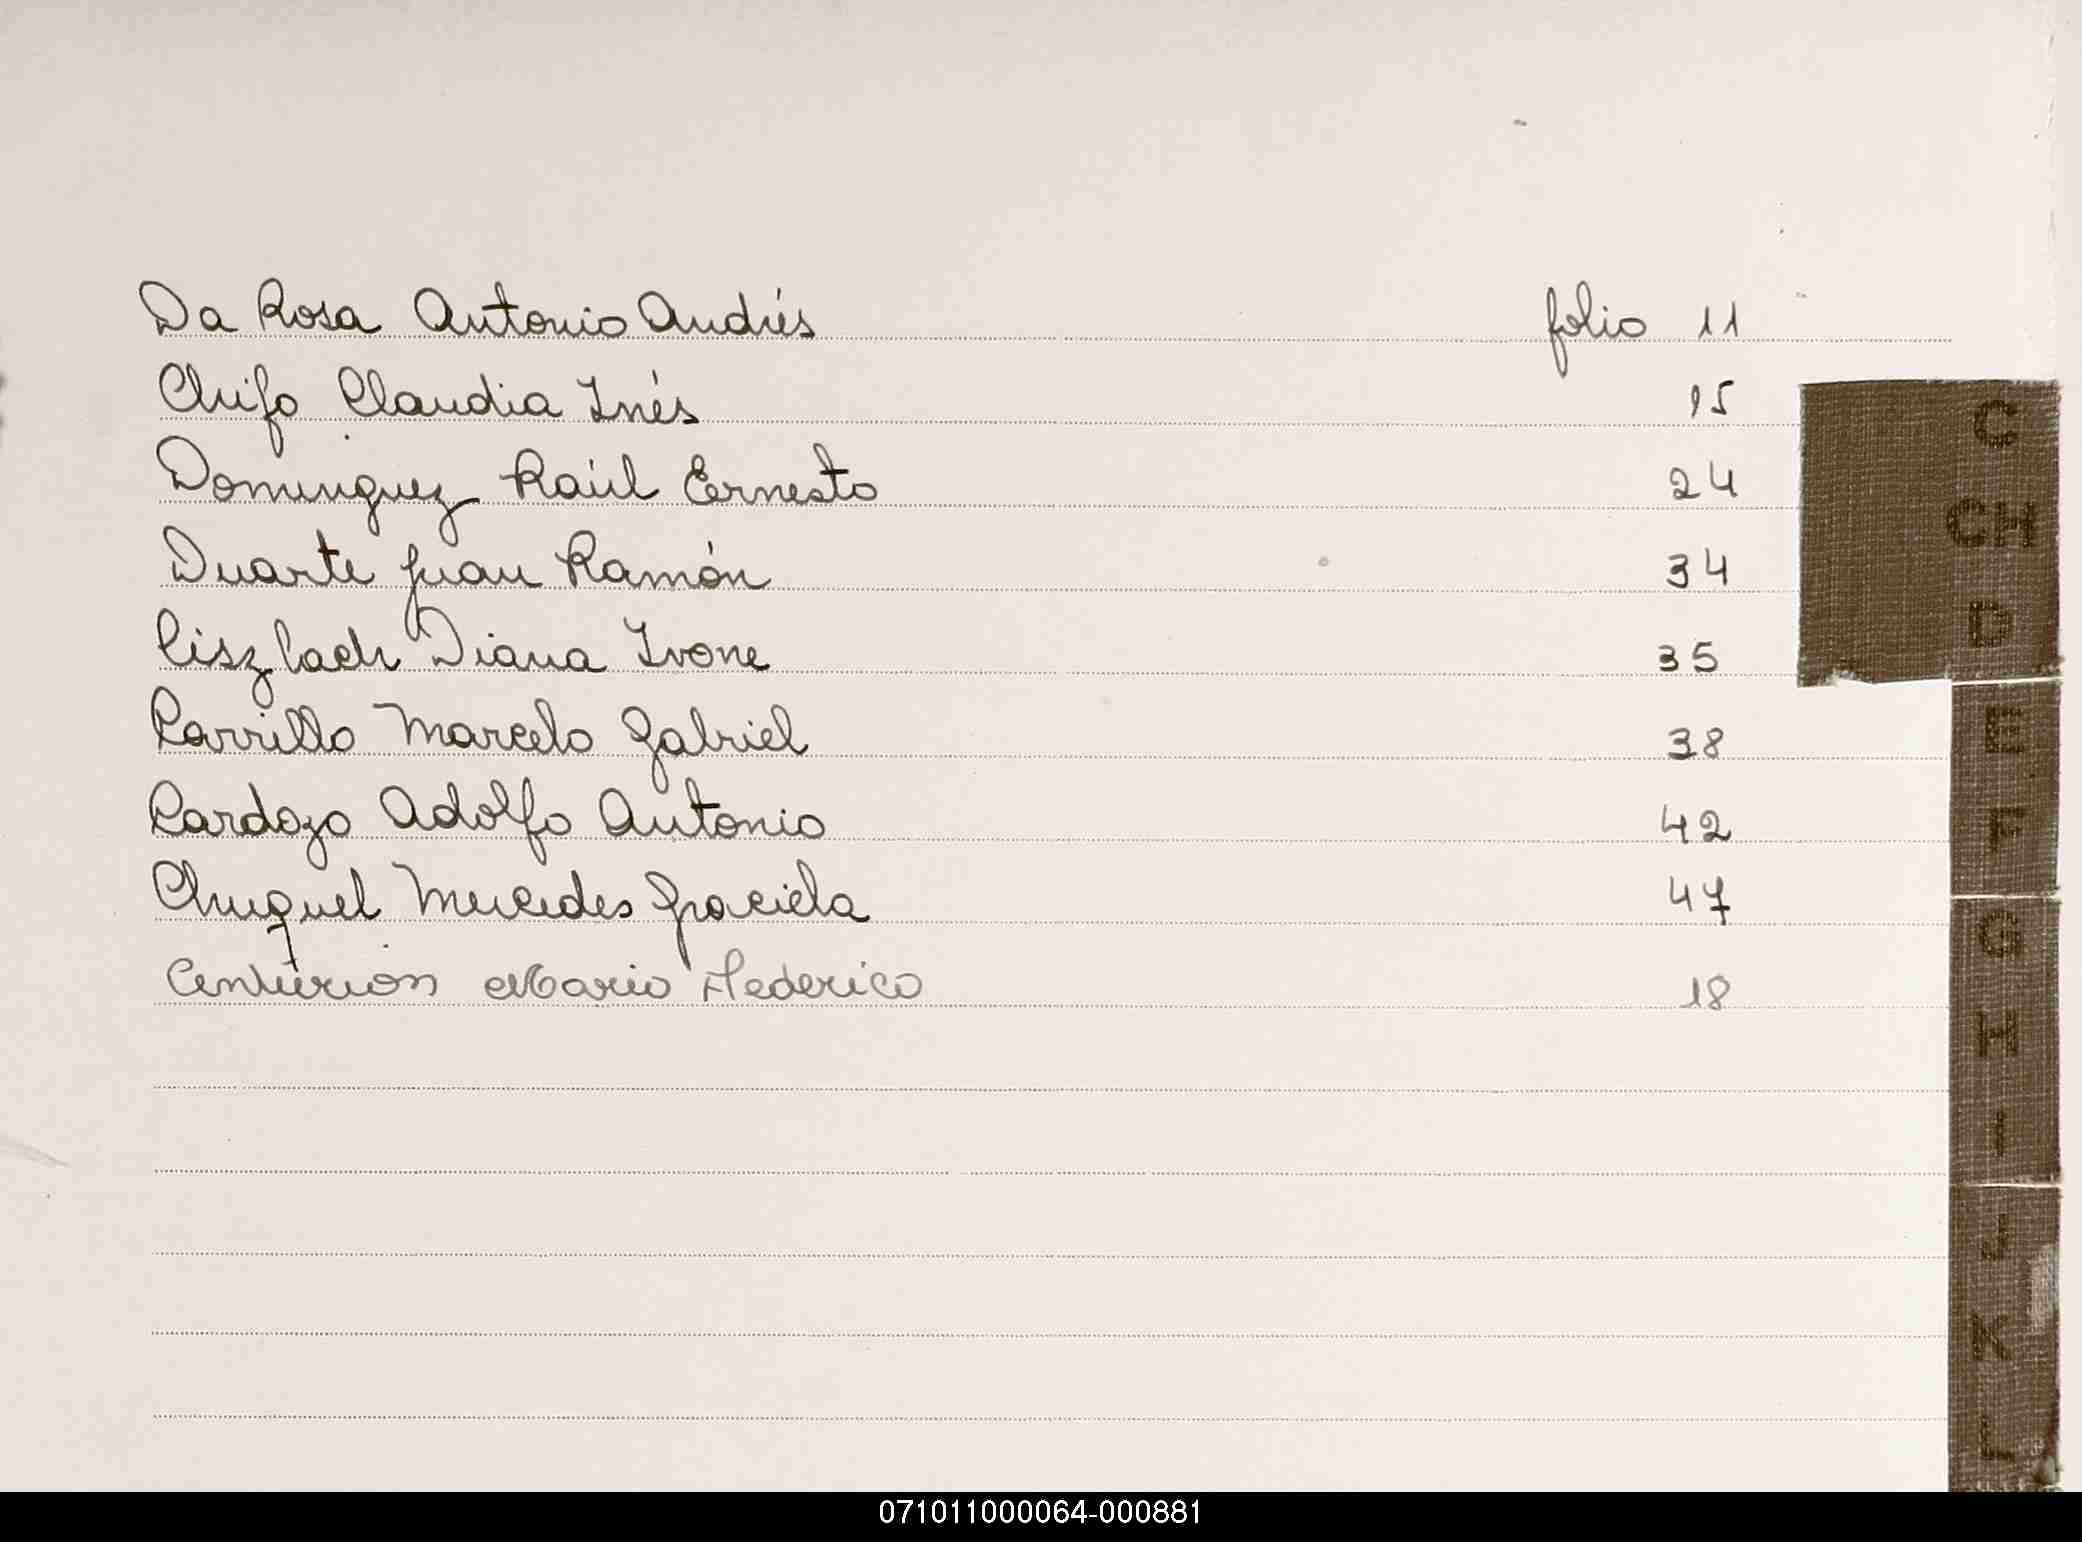 Da Rosa Antonio Andrés folio 11
Chifo Claudia Inés 15
Dominguez Raúl Ernesto 24
Duarte Juan Ramón 34
Ciszlach Diana Ivone 35
Carrillo Marcelo Gabriel 38
Cardozo Adolfo Antonio 42
Chuquel Mercedes Graciela 47
Centurión Mario Federico 18
C
CH
D
E
F
G
H
I
J
K
L
071011000064-000881